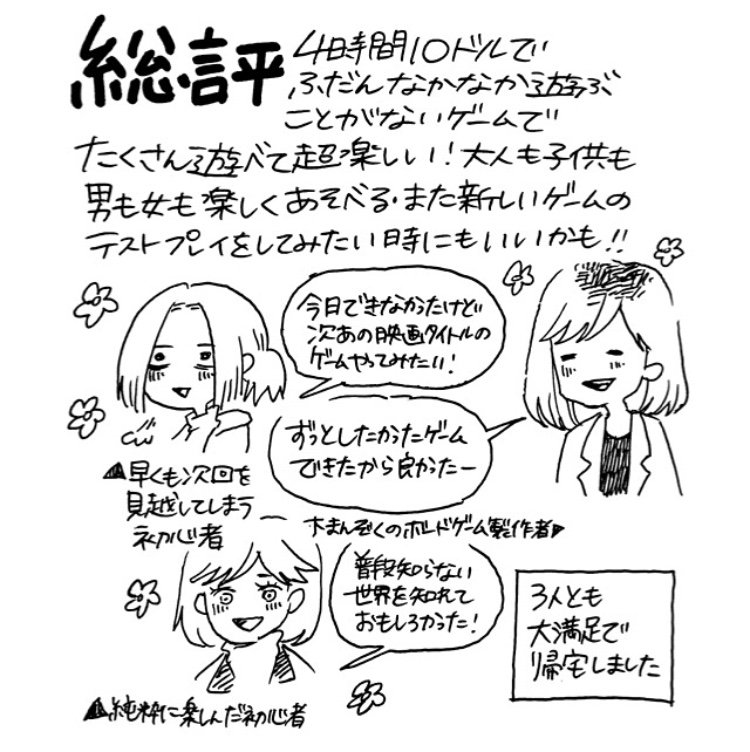 総評
4時間10ドルで
ふだんなかなか遊ぶ
ことがないゲームで
たくさん遊べて超楽しい！大人も子供も
男も女も楽しくあそべる・また新しいゲームの
テストプレイをしてみたい時にもいいかも!!
今日できなかったけど
次あの映画タイトルの
ゲームやってみたい！
ずっとしたかったゲーム
できたから良かったー
▲早くも次回を
見越してしまう
初心者
大まんぞくのボードゲーム製作者▶
普段知らない
世界を知れて
おもしろかった！
▲純粋に楽しんだ初心者
3人とも
大満足で
帰宅しました